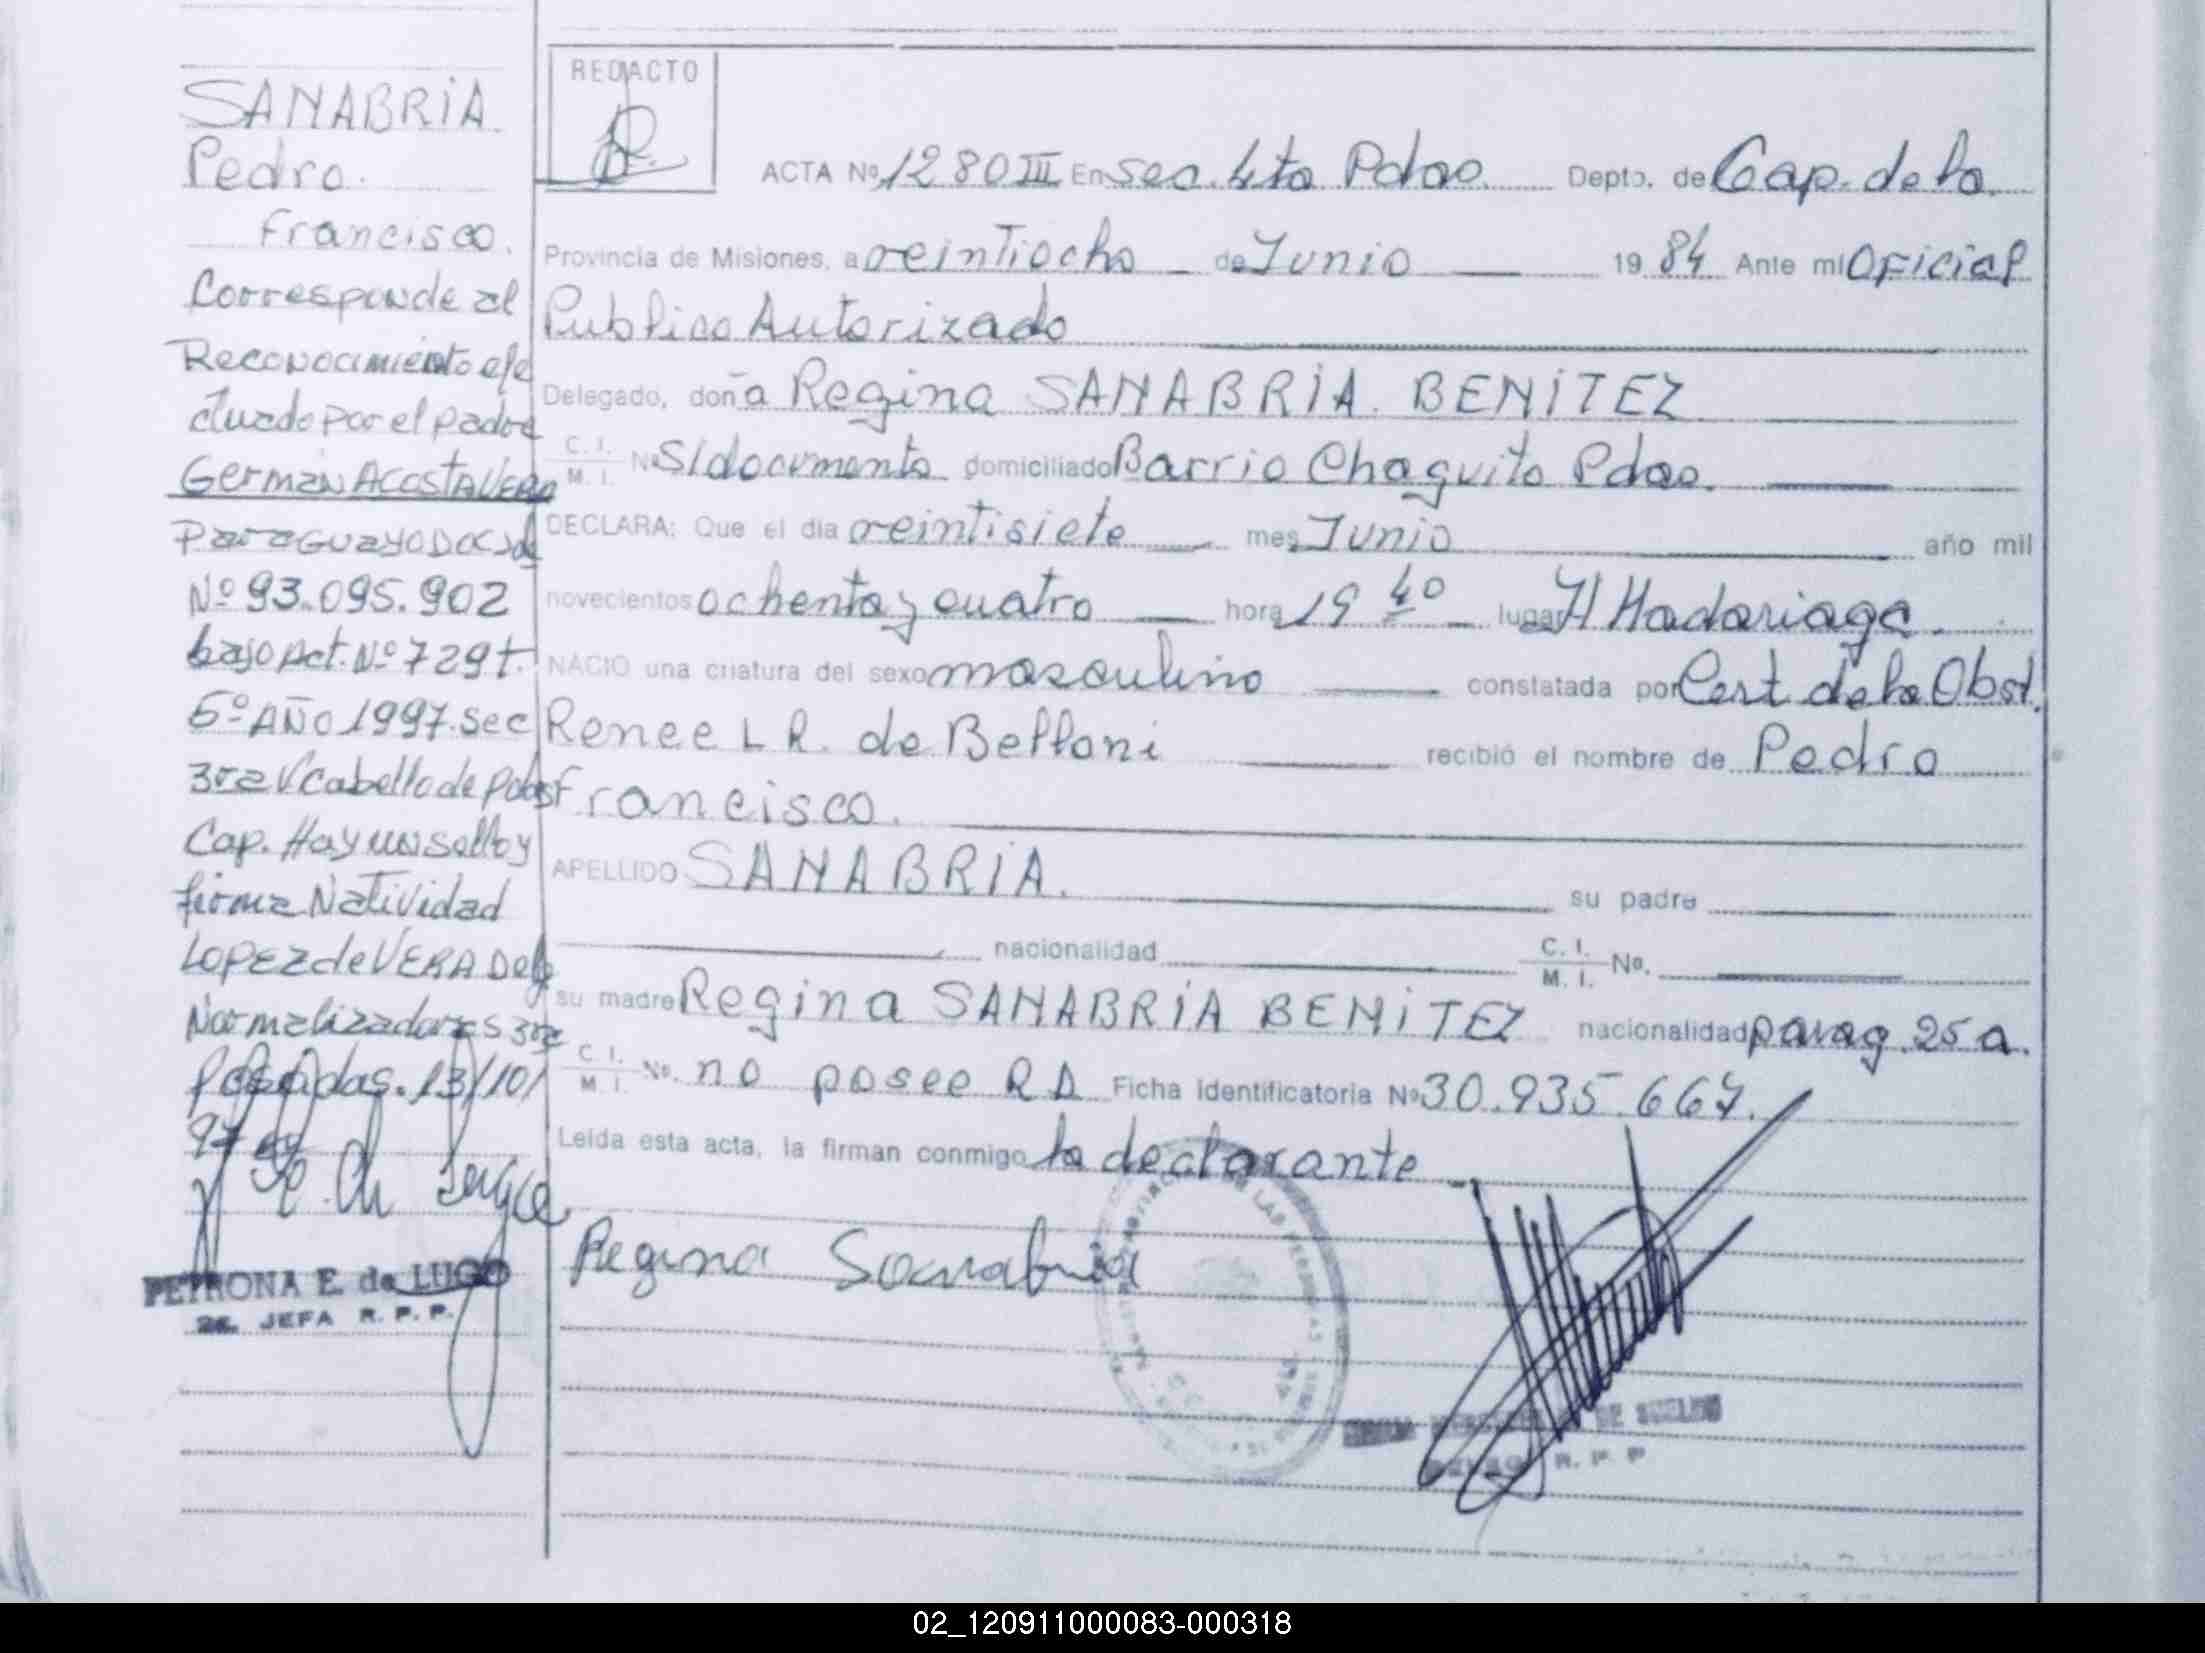 SANABRIA
Pedro.
Francisco.
Corresponde al
Reconocimiento efe
ctuado por el padre
German ACOSTA VERA
Paraguayo Doc. de
Nº 93.095.902
bajo Act. Nº 729 t.
6º AÑO 1997. sec
3ra V Cabello de Pdas
Cap. Hay un sello y
firma Natividad
LOPEZ de VERA Deleg
Normalizadora S 3ra
Posadas. 13/10/
97
PETRONA E. de LUGO
JEFA R. P. P.
REDACTO
ACTA Nº 1280 III En sec. 4ta Pdas. Depto. de Cap. de la
Provincia de Misiones, a veintiocho de Junio 19 84 Ante mi Oficial
Publico Autorizado
Delegado, doña Regina SANABRIA BENITEZ
C. I. M. I. Nº S/documento domiciliado Barrio Chaquito Pdas.
DECLARA: Que el día veintisiete mes Junio año mil
novecientos ochenta y cuatro hora 19 40 lugar H Madariaga.
NACIO una criatura del sexo masculino constatada por Cert de la Obst.
Renee L R. de Belloni recibió el nombre de Pedro
Francisco.
APELLIDO SANABRIA. su padre
nacionalidad C. I. M. I. Nº.
su madre Regina SANABRIA BENITEZ nacionalidad parag. 25 a.
C. I. M. I. Nº. no posee RD Ficha identificatoria Nº 30.935.667.
Leída esta acta, la firman conmigo la declarante
Regina Sanabria
R. P. P
02_120911000083-000318